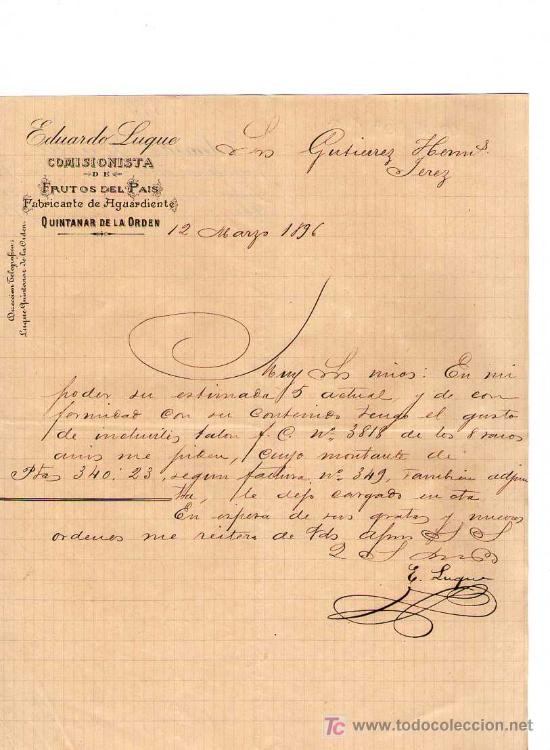 Eduardo Luque
COMISIONISTA
DE
FRUTOS DEL PAIS
Fabricante de Aguardiente
QUINTANAR DE LA ORDEN
Dirección Telegráfica:
Luque Quintanar de la Orden
Srs Gutierrez Herms.
Jerez
12 Marzo 1896
Muy Srs mios: En mi
poder su estimada 5 actual, y de con
formidad con su contenido tengo el gusto
de incluirles talon f. C. nº 3818 de los 8 sacos
anis me piden, cuyo montante de
Ptas 340.23, segun factura nº 349, tambien adjun
ta, le dejo cargado en cta
En espera de sus gratas y nuevas
ordenes me reitero de Vds afmo S S
Q S M B
E. Luque
TC www.todocoleccion.net